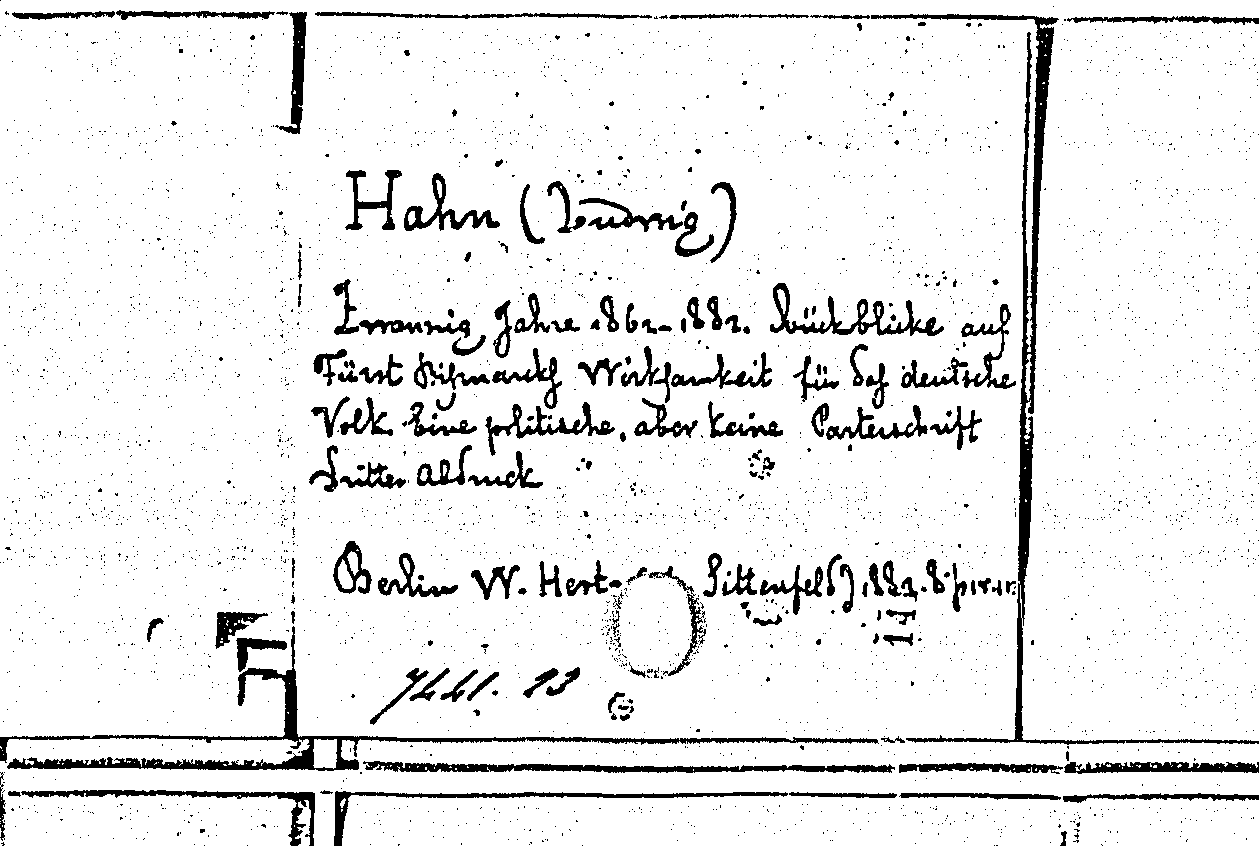 Hahn (Ludwig)
Zwanzig Jahre 1862-1882. Rückblicke auf
Fürst Bismarcks Wirksamkeit für das deutsche
Volk. Eine politische, aber keine Parteischrift
Dritter Abdruck
Berlin W. Hertz Sittenfeld) 1882. 8°